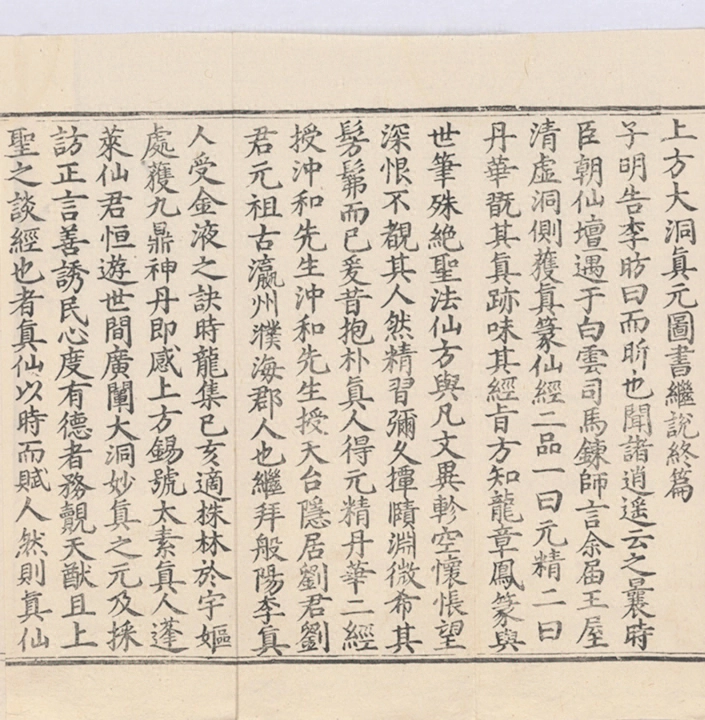 上方大洞眞元圖書繼說終篇
子明告李昉曰而昕也聞諸逍遙云之曩時
臣朝仙壇遇于白雲司馬鍊師言余屆王屋
清虛洞側獲眞篆仙經二品一曰元精二曰
丹華翫其眞跡味其經旨方知龍章鳳篆與
世筆殊絶聖法仙方與凡文異軫空懷悵望
深恨不覩其人然精習彌久撢賾淵微希其
髣髴而已爰昔抱朴眞人得元精丹華二經
授沖和先生沖和先生授天台隱居劉君劉
君元祖古瀛州濮海郡人也繼拜般陽李眞
人受金液之訣時龍集已亥適株林於宇嫗
處獲九鼎神丹即感上方錫號太素眞人蓬
萊仙君恒遊世間廣闡大洞妙眞之元及採
訪正言善誘民心度有德者務覿天猷且上
聖之談經也者眞仙以時而賦人然則眞仙